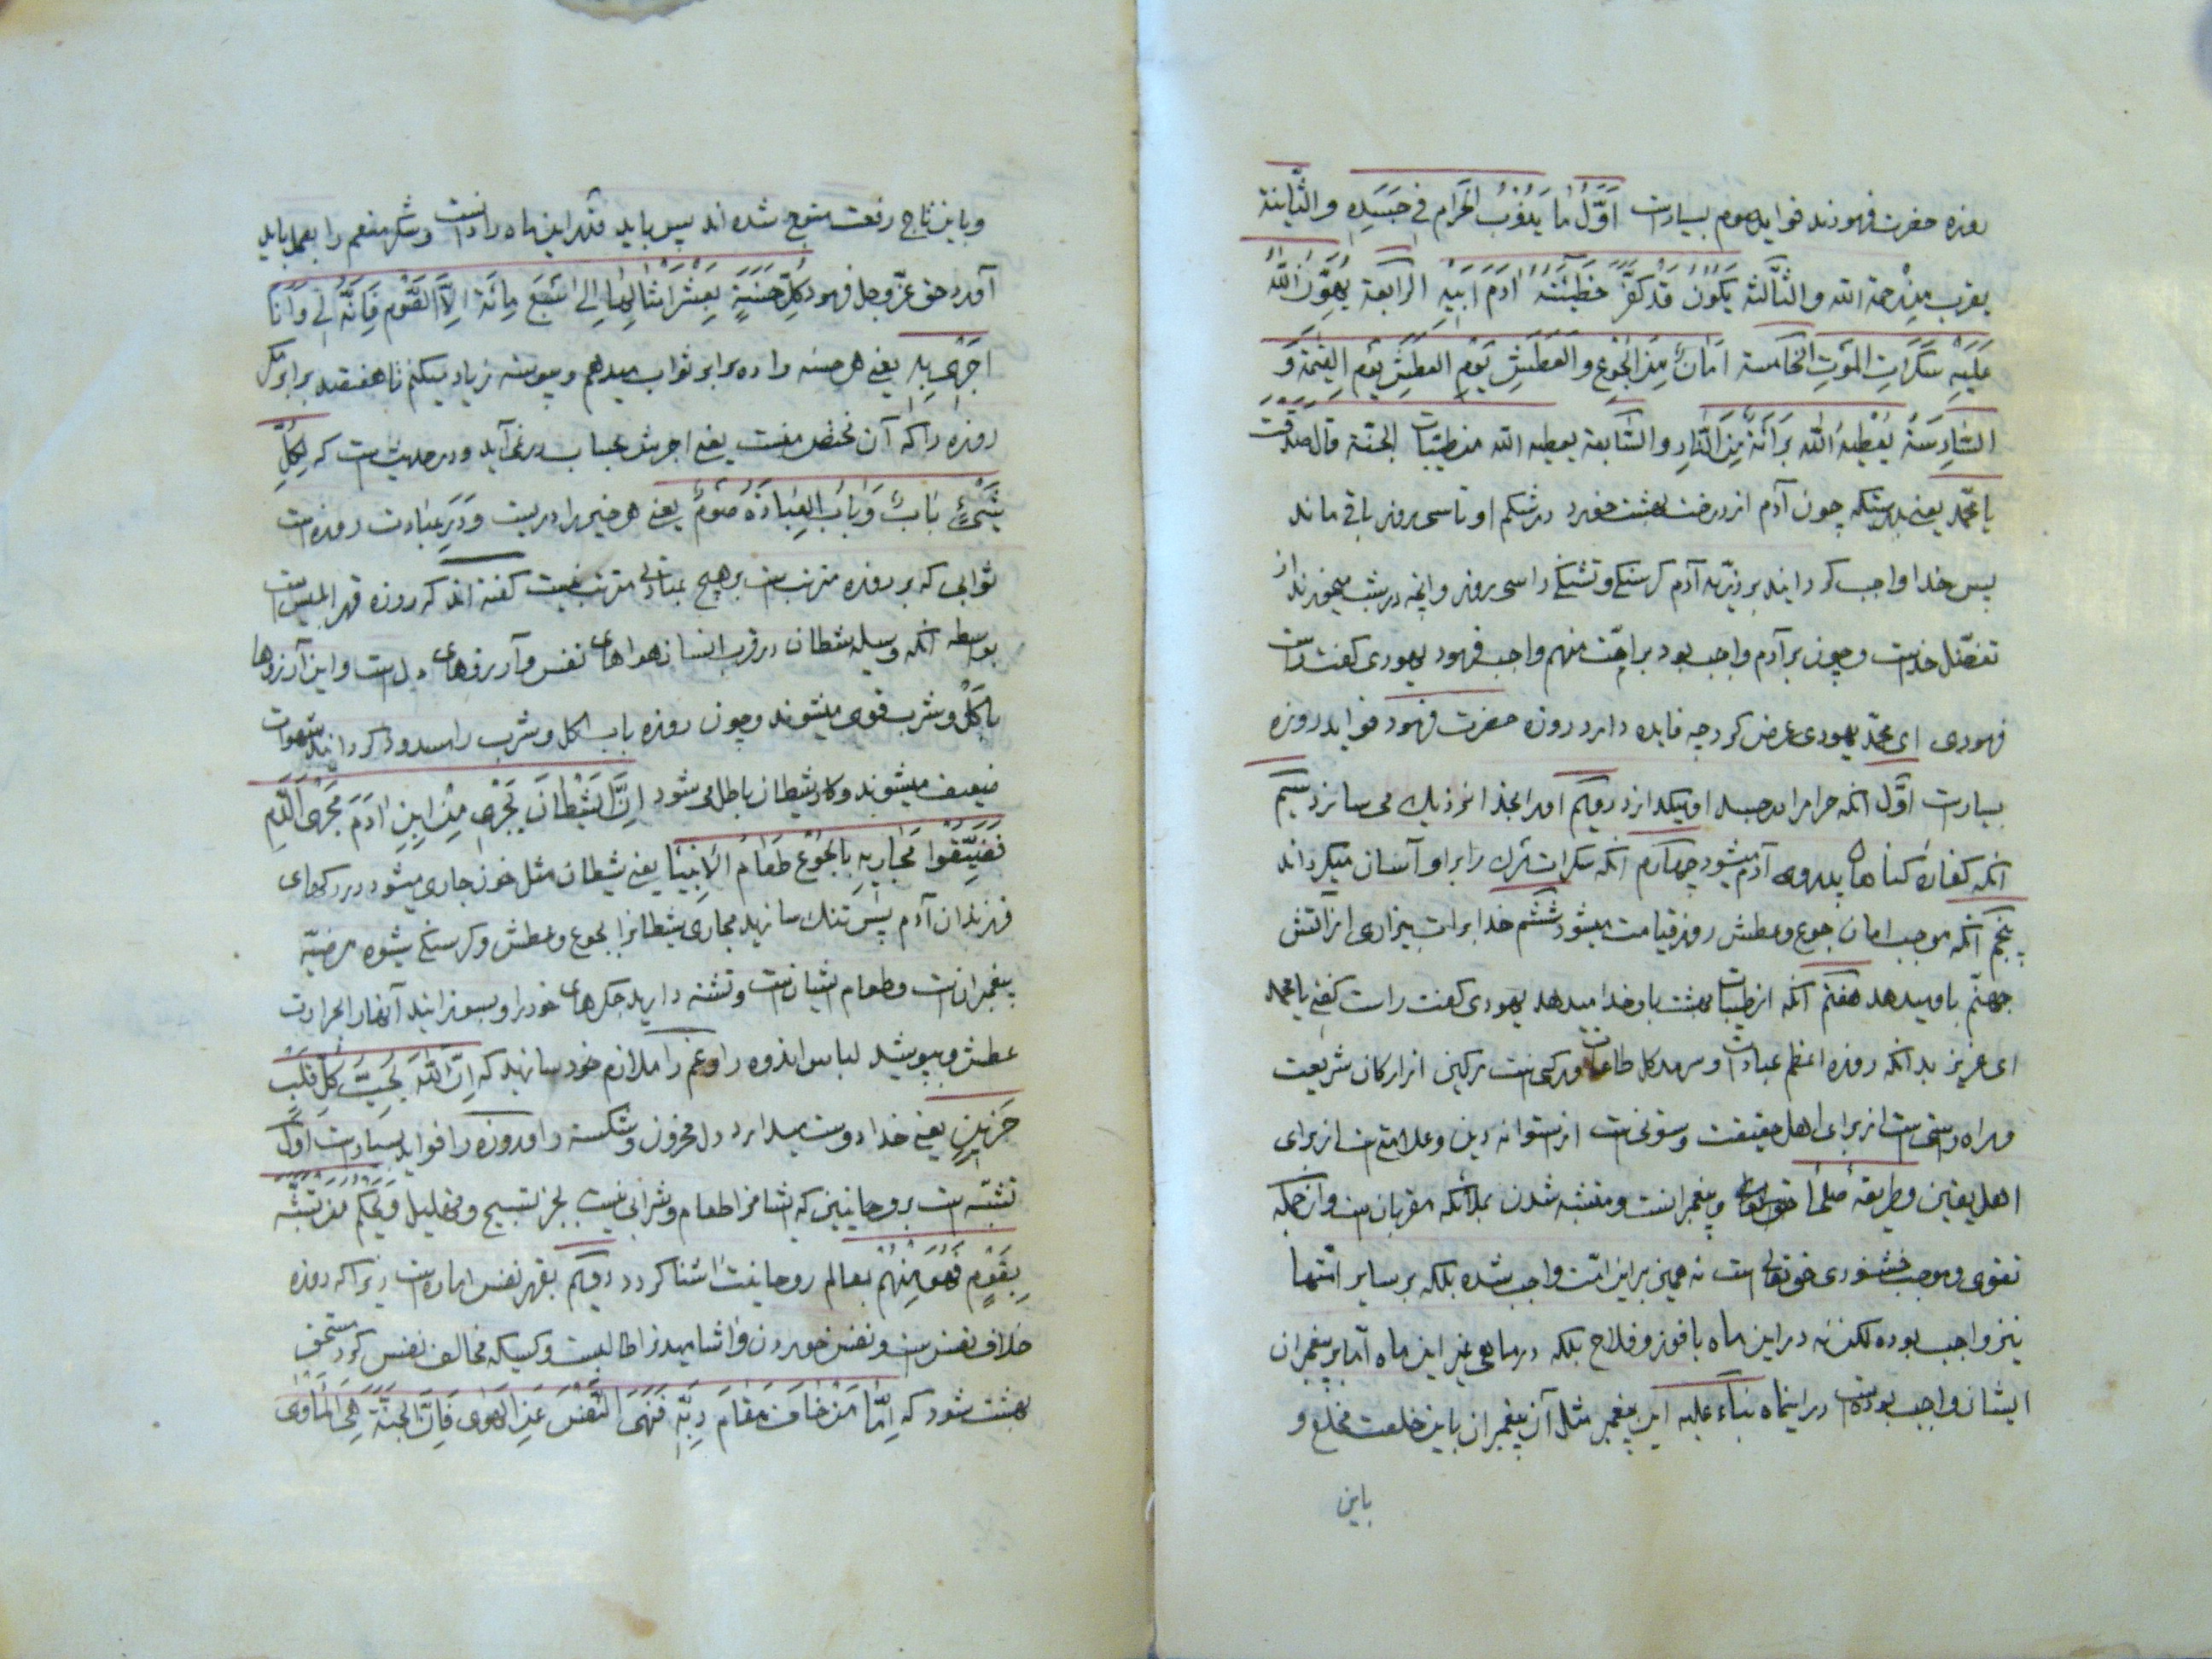 روزه حضرت فرمودند فواید صوم بسیارست اَوَّلُ ما یَذُوبُ الحَرام فی جَسَدِهِ و الثّانیة
یقرب مِنْ رحمة الله و الثّالثة یَکُونُ قَدْ کَفَّرَ خَطیئَتَهُ آدَمَ اَبیهِ الرابعة یُهَوِّنُ اللّٰهُ
عَلَیْهِ سَکَرَاتِ المَوْتِ الخامسة اَمانٌ مِنَ الجُوعِ و العَطَشِ یَوْمَ العَطَشِ یَوْمِ القِیٰمَةِ وَ
السّادِسَةُ یُعْطِیهُ اللّٰه بَرائَةً مِنَ النّارِ و السّابعة یعطیه الله من طیّبات الجنّة قال صَدَقْتَ
یا محمّد یعنی بدرستیکه چون آدم از درخت بهشت خورد در شکم او تا سی روز باقی ماند
پس خدا واجب کردانید بر ذرّیه آدم کرسنکی و تشنکی را سی روز و آنچه در شب میخورند از
تفضّل خداست و چون بر آدم واجب بود بر امّت من هم واجب فرمود یهودی کفت راست
فرمودی ای محمّد یهودی عرض کرد چه فایده دارد روزه حضرت فرمود فواید روزه
بسیارست اوّل آنکه حرام را در جسد او میکدازد دویّم او را بخدا نزدیک می سازد سیّم
آنکه کفاره کناهان پدر وی آدم میشود چهارم آنکه سکرات مرک را بر او آسان میکرداند
پنجم آنکه موجب امان جوع و عطش روز قیامت میشود ششم خدا برات بیزاری از آتش
جهنّم باو میدهد هفتم آنکه از طیّبات بهشت باو خدا میدهد یهودی کفت راست کفتی یا محمد
ای عزیز بدانکه روزه اعظم عباداتست و سرمد کل طاعات و رکنی است رکین از ارکان شریعت
و راه راستی است از برای اهل حقیقت و ستونی است از ستوانه دین و علامتی است از برای
اهل یقین و طریقه صلحا و پیغمبرانست و متشبه شدن بملائکه مقربان است و از جمله
تقوی و موجب خشنودی حق تعالی است نه همین بر این امّت واجب شده بلکه بر سایر امّتها
نیز واجب بوده لکن نه در این ماه با فوز و فلاح بلکه در ماهی غیر این ماه امّا بر پیغمبران
ایشان واجب بوده است در اینماه بناء علیه این پیغمبر مثل آن پیغمبران باین خلعت مخلّع و
باین
و باین تاج رفعت متوج شده اند پس باید قدر این ماه را دانست و شکر منعم را بعمل باید
آورد حق عزّ و جل فرمود کُلِّ حَسَنَةٍ بِعَشْرِ اَمْثالِها اِلی سَبْعَ مِائَة اِلّا الصَّوْم فَاِنَّهُ لی وَ اَنَا
اَجْزی بِهِ یعنی هر حسنه را ده برابر ثواب میدهم و پیوسته زیاد میکنم تا هفتصد برابر مکر
روزه را که آن مختص منست یعنی اجرش بحساب در نمی آید و در حدیث است که لِکُلِّ
شَیْءٍ بابٌ وَ بابُ العِبادَةِ صَوْمٌ یعنی هر چیز را در یست و دَرِ عبادت روزه است
ثوابی که بر روزه مترتب است بر هیچ عبادتی مترتب نیست کفته اند که روزه قهر ابلیس است
بواسطه آنکه وسیله شیطان در قرب انسان هواهای نفس و آرزوهای دل است و این آرزوها
باکل و شرب قوی میشوند و چون روزه باب اکل و شرب را مسدود کردانید شهوات
ضعیف میشوند و کار شیطان باطل می شود اِنَّ الشَّیْطانَ یَجْری مِنْ ابنِ آدَمَ مَجْرَی الدَّمِ
فَضَیِّقُوا مَجاریهِ بِالجُوع طَعامُ الاَنبِیا یعنی شیطان مثل خون جاری میشود در رکهای
فرزندان آدم پس تنک سازید مجاری شیطانرا بجوع و عطش و کرسنکی شیوه مرضیّه
پیغمبرانست و طعام ایشانست و تشنه دارید جکرهای خود را و بسوزانید آنها را بحرارت
عطش و بپوشید لباس اندوه را و غم را ملازم خود سازید که اِنَّ اللّٰهَ یُحِبُّ کُلَّ قَلْبٍ
حَزینٍ یعنی خدا دوست میدارد دل محزون و شکسته را و روزه را فواید بسیارست اَوَّل
تشبّه است بروحانیین که ایشانرا طعام و شرابی نیست بجز تسبیح و تهلیل وَ بِحُکم مَن تشَبَّه
بِقَوْمٍ فَهُوَ مِنْهُم بعالم روحانیت آشنا کردد دویّم بقهر نفس اماره است زیرا که روزه
خلاف نفس است و نفس خوردن و آشامیدنرا طالبست و کسیکه مخالف نفس کرد مستحق
بهشت شود که اَمّا مَنْ خافَ مَقامَ رَبِّهِ فَنَهَی النَّفْسَ عَنِ الهَوی فَاِنَّ الجَنَّةَ هِیَ المَأْوی